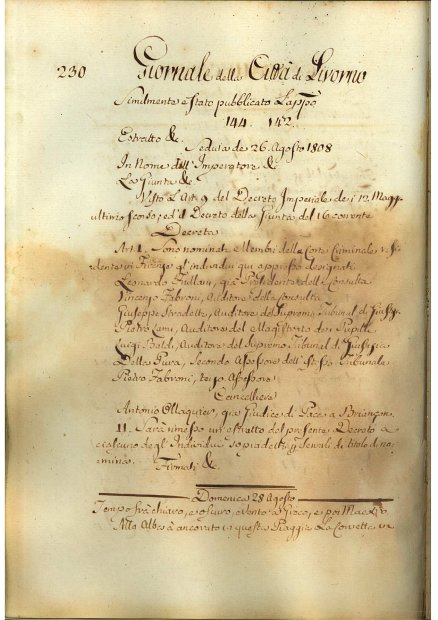 230 Giornale della Città di Livorno
Similmente è stato pubblicato
144. 152.
Estratto &.
Seduta de 26. Agosto 1808
In Nome dell'Imperatore &
La Giunta &.
Visto l'Art. 9 del Decreto Imperiale de' 12 Magg.
ultimo scorso, ed il Decreto della Giunta del 16 corrente
Decreta
Art. 1. Sono nominati Membri della Corte Criminale
in Firenze gl'individui qui appresso designati
Leonardo Frullani, già Presidente dell' Consulta
Vincenzo Fabroni, Auditore della Consulta
Giuseppe Auditore del Supremo Tribunal di
Pietro Lami, Auditore del Magistrato de' Pupilli
Luigi Baldi, Auditore del Supremo Tribunal di Giustizia
Della Pura, Secondo Assessore dell'istesso Tribunale
Pietro Fabroni, terzo Assessore
Cancelliere
Antonio già Giudice di Pace a Briançon
11. Sarà rimesso un'estratto del presente Decreto a
ciascuno degl'Individui sopradetti di titolo di no-
mina. Firmati &.
Domenica 28 Agosto
Tempo frà chiaro, e oscuro, vento a Greco, e poi
All'Alba à ancorato in questa Piaggia La Corvetta